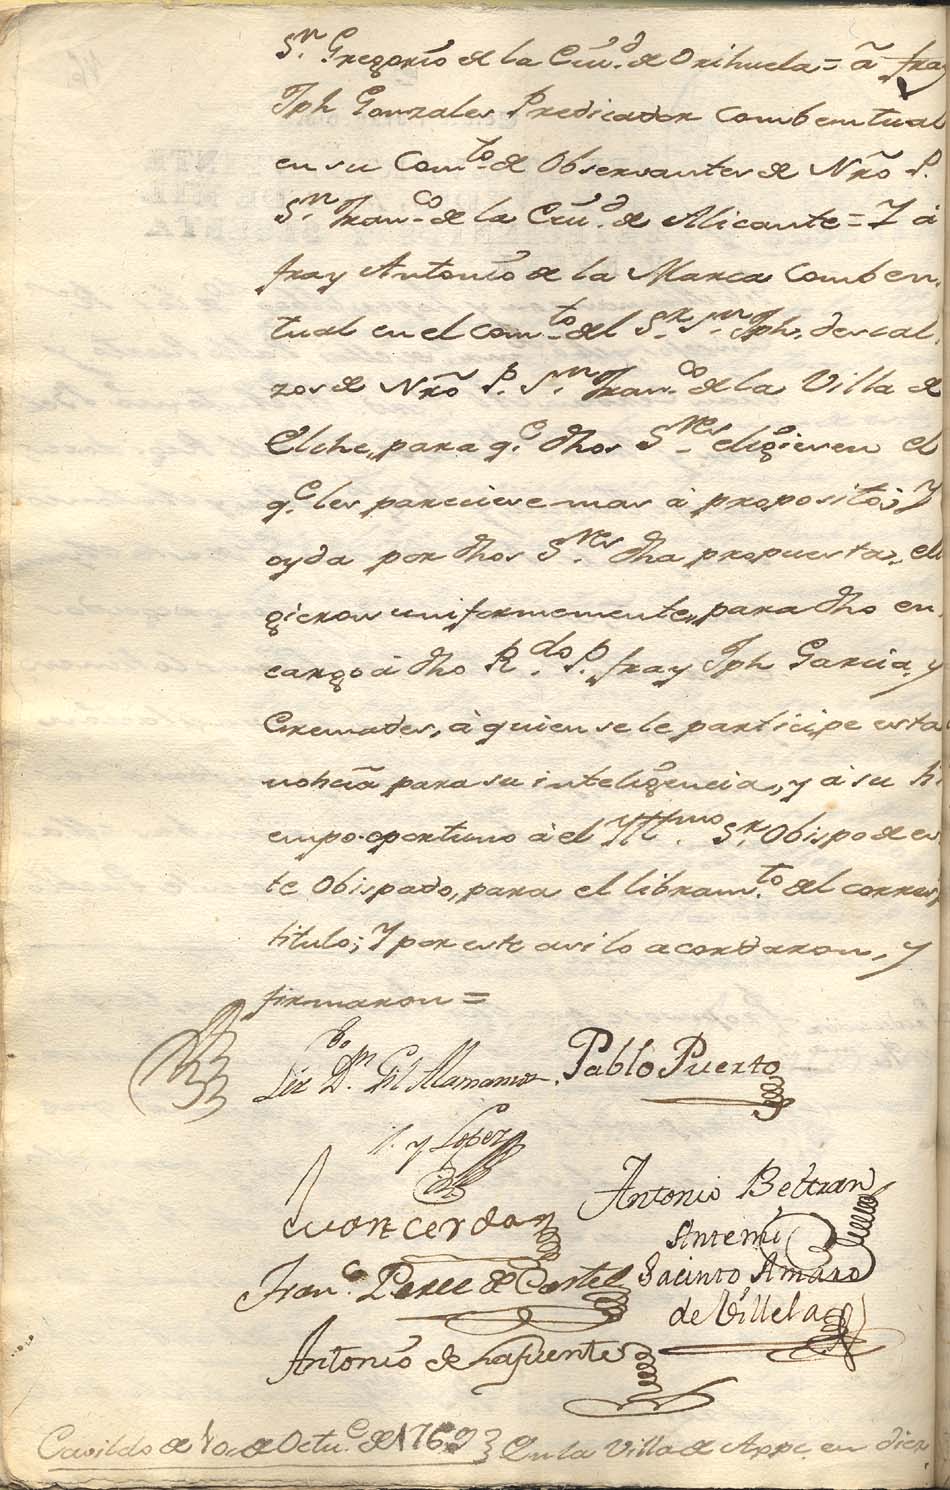 Sn. Gregorio de la Ciud. de Orihuela = a fray
Jph Gonzales Predicador Combentual
en su Comto. de Observantes de Nro P.
Sn. Franco. de la Ciud. de Alicante = Y à
fray Antonio de la Marca Comben-
tual en el comto. del Sr. Sn. Jph, descal-
zos de Nro P. Sn. Franco. de la Villa de
Elche, para qe. dhos Sres. eligiesen el
qe. les pareciese mas à proposito; Y
oyda por dhos Sres. dha propuesta, eli
gieron uniformemente, para dho en-
cargo à dho Rdo. P. fray Jph Garcia, y
Cremades, à quien se le participe esta
noticia para su inteligencia, y à su ti
empo oportuno à el Yllmo. Sr. Obispo de es
te Obispado, para el libramto. del corresp
titulo; Y por este asi lo acordaron, y
firmaron =
Lizdo. Dn. Gil Alamanos Pablo Puerto
y Lopez
Juan Cerdan Antonio Beltran
Antemi
Franco. Perez de Costel Jacinto Amaro
de Villela
Antonio de Lafuente
Cavildo de 10 de Octue. de 1769 } En la Villa de Aspe en diez